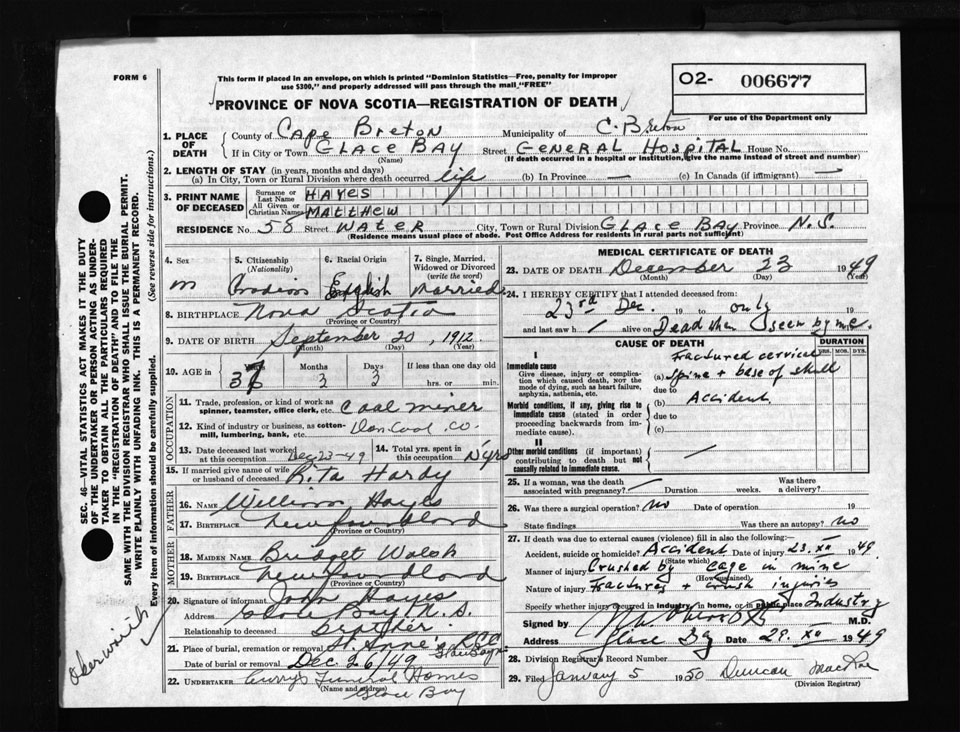 FORM 6
This form if placed in an envelope, on which is printed "Dominion Statistics—Free, penalty for improper
use $300," and properly addressed will pass through the mail "FREE"
PROVINCE OF NOVA SCOTIA—REGISTRATION OF DEATH
02- 006677
For use of the Department only
1. PLACE OF DEATH County of Cape Breton Municipality of C. Breton
If in City or Town GLACE BAY Street GENERAL HOSPITAL House No.
(Name) (If death occurred in a hospital or institution, give the name instead of street and number)
2. LENGTH OF STAY (in years, months and days)
(a) In City, Town or Rural Division where death occurred life (b) In Province — (c) In Canada (if immigrant) —
3. PRINT NAME OF DECEASED Surname or Last Name HAYES
All Given or Christian Names MATTHEW
RESIDENCE No. 58 Street WATER City, Town or Rural Division GLACE BAY Province N.S.
(Residence means usual place of abode. Post Office Address for residents in rural parts not sufficient)
4. Sex M 5. Citizenship (Nationality) Canadian 6. Racial Origin English 7. Single, Married, Widowed or Divorced (write the word) Married
8. BIRTHPLACE Nova Scotia
(Province or Country)
9. DATE OF BIRTH September 20, 1912
(Month) (Day) (Year)
10. AGE in Years Months 3 Days 3 If less than one day old hrs. or min.
OCCUPATION
11. Trade, profession, or kind of work as spinner, teamster, office clerk, etc. Coal miner
12. Kind of industry or business, as cotton-mill, lumbering, bank, etc. Dom Coal Co.
13. Date deceased last worked at this occupation Dec 23-49 14. Total yrs. spent in this occupation yrs
15. If married give name of wife or husband of deceased Rita Hardy
FATHER
16. NAME William Hayes
17. BIRTHPLACE Newfoundland
(Province or Country)
MOTHER
18. MAIDEN NAME Bridget Walsh
19. BIRTHPLACE Newfoundland
(Province or Country)
20. Signature of informant John Hayes
Address Glace Bay N.S.
Relationship to deceased brother
21. Place of burial, cremation or removal St. Anne's Glace Bay
Date of burial or removal Dec 26/49
22. UNDERTAKER Curry's Funeral Homes
(Name and address) Glace Bay
MEDICAL CERTIFICATE OF DEATH
23. DATE OF DEATH December 23 1949
(Month) (Day) (Year)
24. I HEREBY CERTIFY that I attended deceased from:
23rd Dec. 19 to only 19
and last saw h / alive on Dead when seen by me. 19
CAUSE OF DEATH DURATION
YRS. MOS. DYS.
I
Immediate cause
Give disease, injury or complication which caused death, not the mode of dying, such as heart failure, asphyxia, asthenia, etc.
(a) Fractured cervical spine + base of skull
due to
Morbid conditions, if any, giving rise to immediate cause (stated in order proceeding backwards from immediate cause).
(b) Accident
due to
(c)
II
Other morbid conditions (if important) contributing to death but not causally related to immediate cause.
25. If a woman, was the death associated with pregnancy? Duration weeks. Was there a delivery?
26. Was there a surgical operation? no Date of operation 19
State findings Was there an autopsy? no
27. If death was due to external causes (violence) fill in also the following:—
Accident, suicide or homicide? Accident Date of injury 23. XII 1949
(State which)
Manner of injury Crushed by cage in mine
(How sustained)
Nature of injury Fractures crush injuries
Specify whether injury occurred in industry, in home, or in public place Industry
Signed by M.D.
Address Glace Bay Date 29. XII 1949
28. Division Registrar's Record Number
29. Filed January 5 1950 Duncan MacRae
(Division Registrar)
SEC. 46—VITAL STATISTICS ACT MAKES IT THE DUTY
OF THE UNDERTAKER OR PERSON ACTING AS UNDER-
TAKER TO OBTAIN ALL THE PARTICULARS REQUIRED
IN THE "REGISTRATION OF DEATH" AND TO FILE THE
SAME WITH THE DIVISION REGISTRAR WHO SHALL ISSUE THE BURIAL PERMIT.
WRITE PLAINLY WITH UNFADING INK. THIS IS A PERMANENT RECORD.
Every item of information should be carefully supplied. (See reverse side for instructions.)